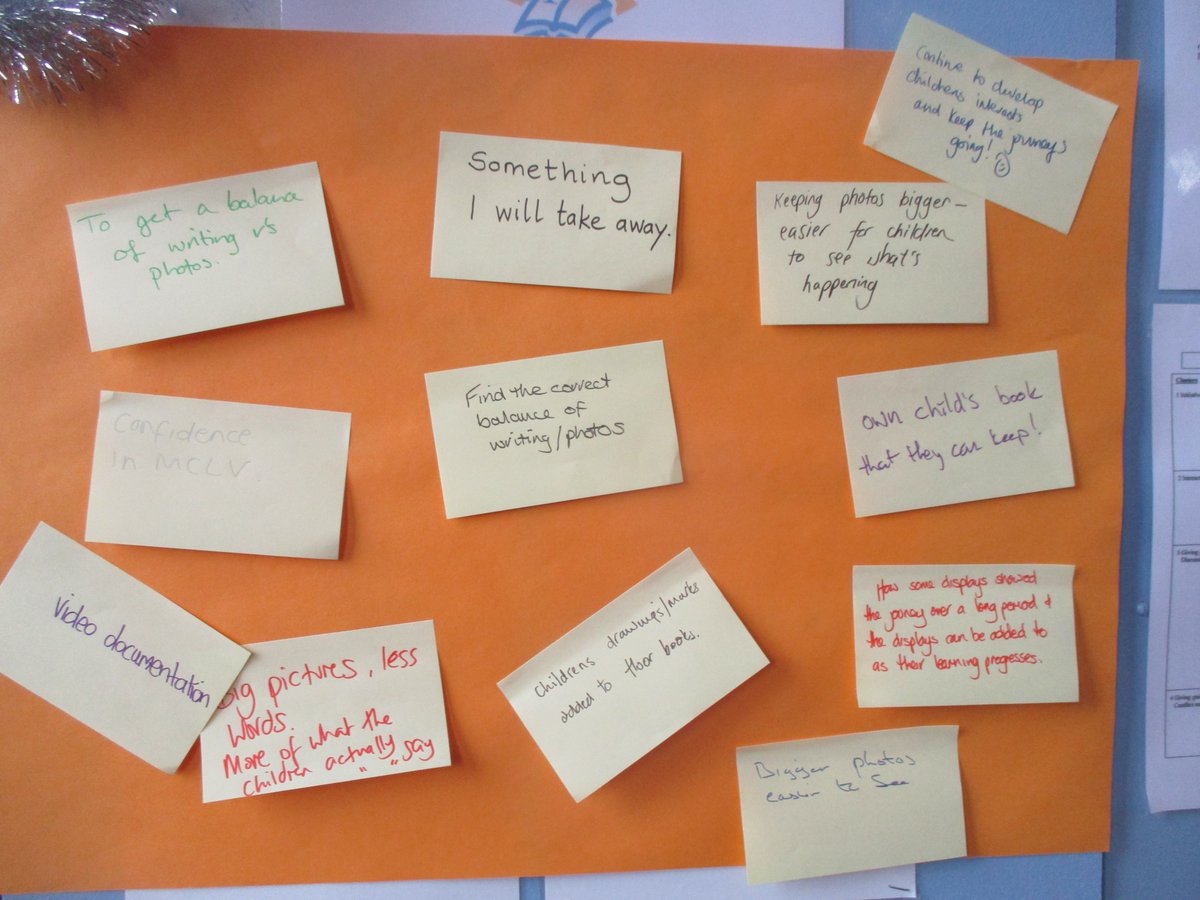 Something
I will take away.
Continue to develop
childrens interests
and keep the journeys
going!
To get a balance
of writing v's
photos.
Keeping photos bigger -
easier for children
to see what's
happening
Find the correct
balance of
writing/photos
own child's book
that they can keep!
Confidence
in MCLV
Video documentation
Big pictures, less
words.
More of what the
children actually "say
Childrens drawings/marks
added to floor books.
How some displays showed
the journey over a long period &
the displays can be added to
as their learning progresses.
Bigger photos
easier to see